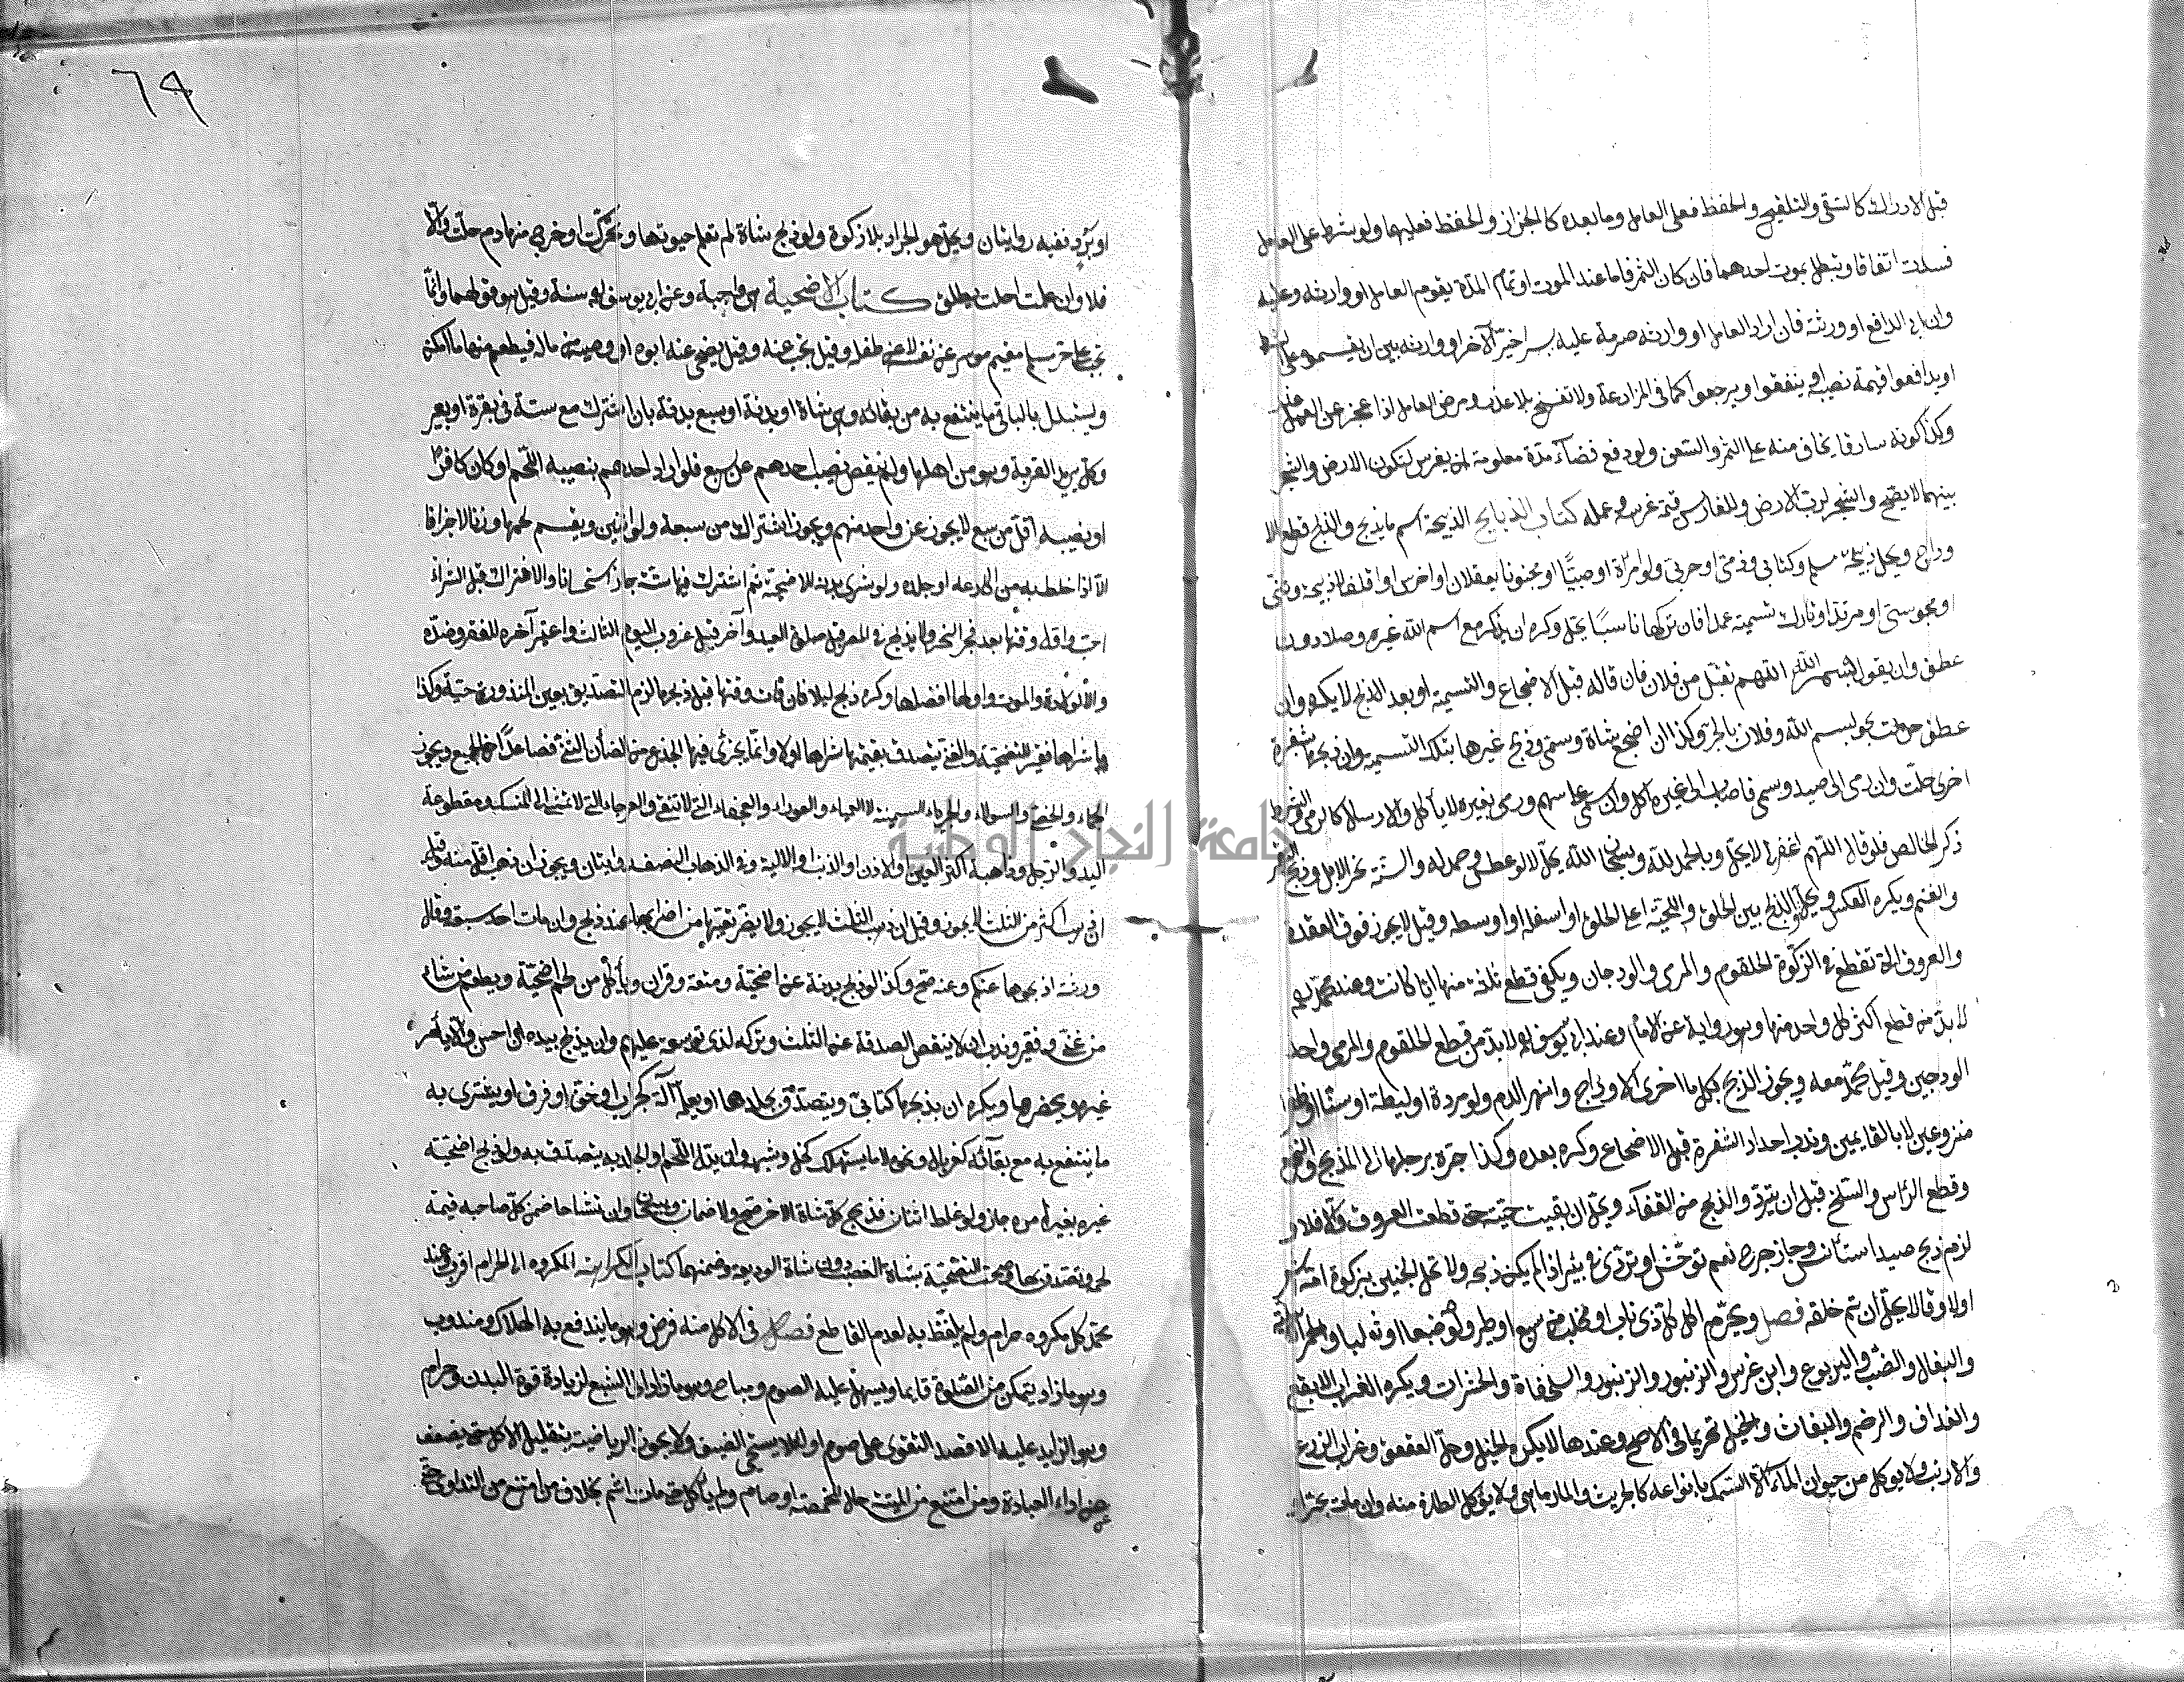 قبل الادراك كالسقي والتلقيح والحفظ فعلى العامل وما بعده كالجزاز والحفظ فعليهما ولو شرط على العامل
فسدت اتفاقا وتبطل بموت احدهما فان كان الثمر خاما عند الموت او تمام المدة يقوم العامل او وارثه وعليه
وان ابى الدافع او ورثته فان اراد العامل او وارثه صرمه عليه بسرا خير الآخر او وارثه بين ان يقسموه على الشرط
او يدافعوا قيمة نصيبه او ينفقوا ويرجعوا كما في المزارعة ولا تفسخ بلا عذر ومرض العامل اذا عجز عن العمل عذر
وكذا كونه سارقا يخاف منه على الثمر والسعف ولو دفع فضاء مدة معلومة لمن يغرس لتكون الارض والشجر
بينهما لا يصح والشجر لرب الارض وللغارس قيمة غرسه وعمله كتاب الذبايح الذبيحة اسم ما يذبح والذبح قطع الا
وداج ويحل ذبيحة مسلم وكتابي وذمي او حربي ولو امرأة او صبيا او مجنونا يعقلان او اخرس او اقلف لا ذبيحة وثني
او مجوسي او مرتد او تارك تسمية عمدا فان تركها ناسيا يحل وكره ان يذكر مع اسم الله غيره وصلا دون
عطف وان يقول بسم الله اللهم تقبل من فلان فان قاله قبل الاضجاع والتسمية او بعد الذبح لا يكره وان
عطف حرمت نحو بسم الله وفلان بالجر وكذا ان اضجع شاة وسمى وذبح غيرها بتلك التسمية وان ذبحها بشفرة
اخرى حلت وان رمى الى صيد وسمى فاصاب غيره اكل وان سمى على سهم ورمى بغيره لا يأكل والارسال كالرمي والشرط
ذكر الخالص فلو قال اللهم اغفر لا يحل وبالحمد لله وسبحان الله يحل لا لو عطس وحمد له والسنة نحر الابل وذبح البقر
والغنم ويكره العكس ويحل والذبح بين الحلق واللحية اعلى الحلق او اسفله او اوسطه وقيل لا يجوز فوق العقدة
والعروق التي تقطع في الزكوة الحلقوم والمري والودجان ويكفي قطع ثلاثة منها ايا كانت وعند محمد
لا بد من قطع اكثر كل واحد منها وهو رواية عن الامام وعند ابي يوسف لا بد من قطع الحلقوم والمري واحد
الودجين وقيل محمد معه ويجوز الذبح بكل ما افرى الاوداج وانهر الدم ولو مروة او ليطة او سنا او ظفرا
منزوعين لا بالقايمين وندب احداد الشفرة قبل الاضجاع وكره بعده وكذا جره برجلها الى المذبح والنخع
وقطع الرأس والسلخ قبل ان تبرد والذبح من القفاء ويحل ان بقيت حية حتى قطعت العروق والا فلا و
لزم ذبح صيد استأنس وجاز جرح نعم توحش او تردى في بئر اذا لم يكن ذبحه ولا تحل الجنين بزكوة امه
اولا وقالا يحل ان تم خلقه فصل ويحرم اكل كل ذي ناب او مخلب من سبع او طير ولو ضبعا او ثعلبا والحمر
والبغال والضب واليربوع وابن عرس والزنبور والسلحفاة والحشرات ويكره الغراب الابقع
والغداف والرخم والبغاث والخيل تحريما في الاصح وعندها لا يكره الخيل وحل العقعق وغراب الزرع
والارنب ولا يؤكل من حيوان الماء الا السمك بانواعه كالجريث والمارماهي ولا يؤكل الطافي منه وان مات بحر
٦٩
او برد ففيه روايتان ويحل هو والجراد بلا زكوة ولو ذبح شاة لم تعلم حيوتها وتحركت او خرج منها دم حلت والا
فلا وان علمت احلت مطلق كتاب الاضحية هي واجبة وعن ابي يوسف سنة وقيل هو قولهما وانما
تجب على حر مسلم مقيم موسر عن نفسه لا عن طفله وقيل تجب عنه وقيل يضحي عنه ابوه او وصيه من ماله فيطعم منها ما امكن
ويستبدل بالباقي ما ينتفع به من بقائه وهي شاة او بدنة او سبع بدنة بان اشترك مع ستة في بقرة او بعير
وكل يريد القربة وهو من اهلها ولم ينقص نصيب احدهم عن سبع فلو اراد احدهم بنصيبه اللحم او كان كافرا
او نصيبه اقل من سبع لا يجوز عن واحد منهم ويجوز اشتراك من سبعة ولو اثنين ويقسم لحمها وزنا لا جزافا
الا اذا خلط به من اكارعه او جلده ولو شرى بدنة للاضحية ثم اشترك فيها ستة جاز استحسانا والاشتراك قبل الشراء
احب واول وقتها بعد فجر النحر ولا يذبح في المصر قبل صلوة العيد وآخره قبل غروب اليوم الثالث واعتبر آخره للفقر وضده
والولادة والموت واولها افضلها وكره ذبح ليلا فان فات وقتها قبل ذبحها لزم التصديق بعين المنذورة حية وكذا
ما شراها فقير للتضحية والغني يتصدق بقيمتها شراها اولا وانما يجزئ فيها الجذع من الضأن والثني فصاعدا من الجميع ويجوز
الجماء والخصي والثولاء والجرباء السمينة لا العمياء والعوراء والعجفاء التي لا تنقي والعرجاء التي لا تمشي الى المنسك ومقطوعة
اليد والرجل وذاهبة اكثر العين او الاذن او الذنب او الالية وفي الذهاب النصف روايتان ويجوز ان ذهب اقل منه وقيل
ان ذهب اكثر من الثلث لا يجوز وقيل ان ذهب الثلث لا يجوز ولا يضر تعيبها من اضرابها عند ذبح وان مات احد سبعة وقال
ورثته اذبحوها عنكم وعنه صح وكذا لو ذبح بدنة عن اضحية ومتعة وقران ويأكل من لحم اضحية ويطعم من شاء
من غني وفقير وندب ان لا ينقص الصدقة عن الثلث وتركه لذي توسعة عليهم وان يذبح بيده ان احسن والا يأمر
غيره ويحضرها ويكره ان يذبحها كتابي ويتصدق بجلدها او يعمله آلة كجراب وخف او فرو او يشتري به
ما ينتفع به مع بقائه كغربال ونحوه لا ما يستهلك كخل وشبهه وان بدل اللحم او الجلد به يتصدق به ولو ذبح اضحية
غيره بغير امره جاز ولو غلط اثنان فذبح كل شاة الاخر صح ولا ضمان وان تشاحا ضمن كل صاحبه قيمة
لحمه وتصدق بها وصحت التضحية بشاة الغصب دون شاة الوديعة وضمنها كتاب الكراهية المكروه الى الحرام اقرب وعند
محمد كل مكروه حرام ولم يلفظ به لعدم القاطع فصل في الاكل منه فرض وهو ما يندفع به الهلاك ومندوب
وهو ما زاد ليتمكن من الصلوة قايما ويسهل عليه الصوم ومباح وهو ما زاد الى الشبع لزيادة قوة البدن وحرام
وهو الزايد عليه الا لقصد التقوي على صوم او لئلا يستحي الضيف ولا يجوز الرياضة بتقليل الاكل حتى يضعف
عن اداء العبادة ومن امتنع من الميتة حال المخمصة او صام ولم يأكل حتى مات اثم بخلاف من امتنع من التداوي حتى